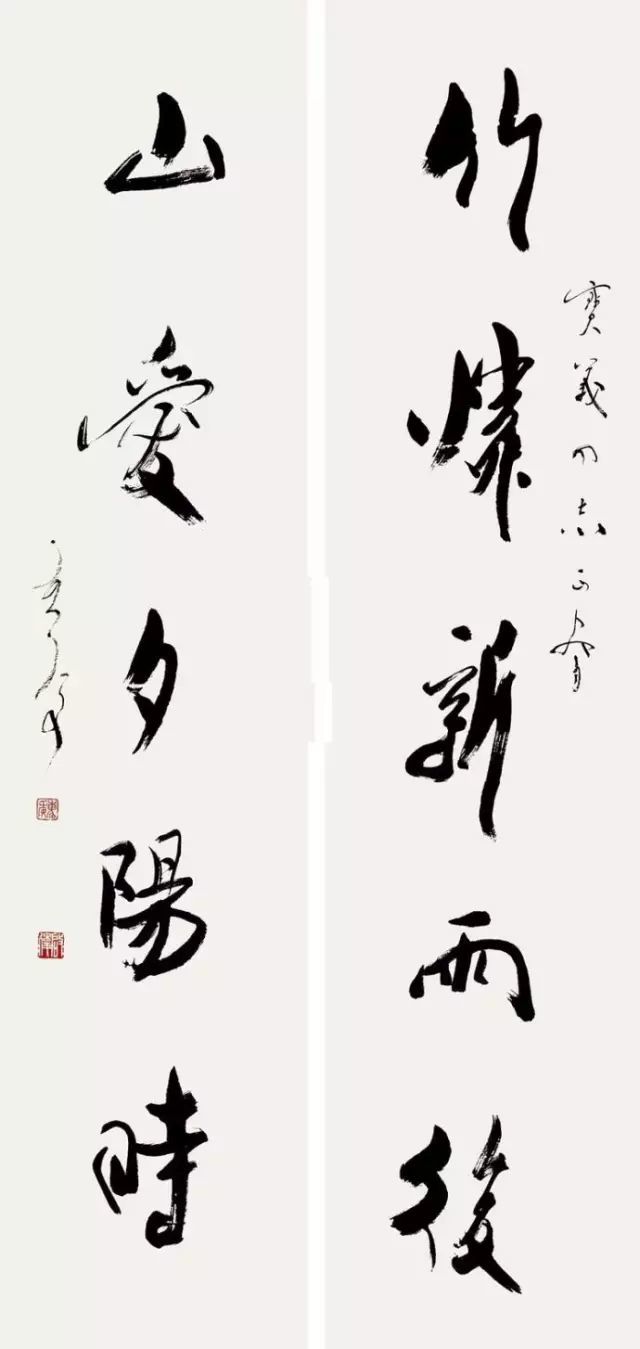 義同志正
竹憐新雨後
山愛夕陽時